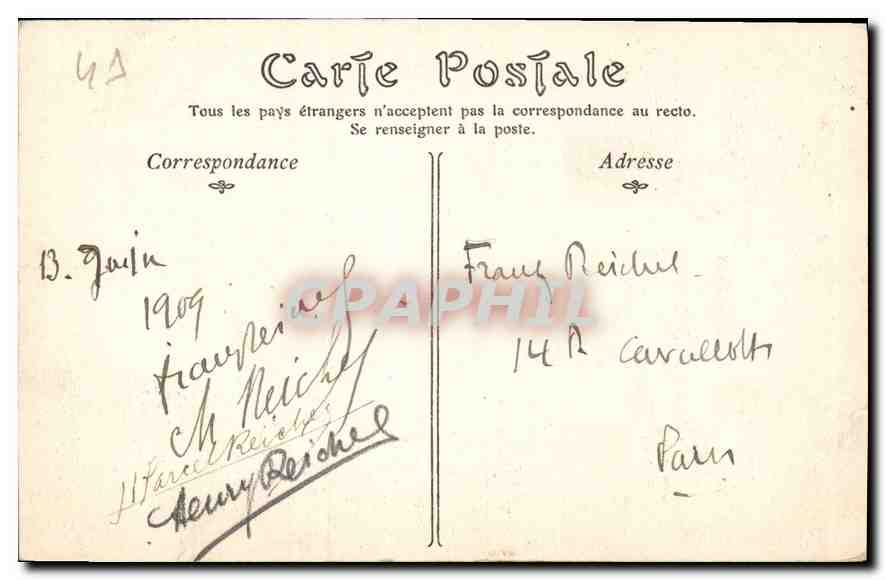 49
Carte Postale
Tous les pays étrangers n'acceptent pas la correspondance au recto.
Se renseigner à la poste.
Correspondance
Adresse
13. Juin
1909
Franz Reichel
M Reichel
Marcel Reichel
Henry Reichel
Franz Reichel
14 R Cavallotti
Paris
CPAPHIL